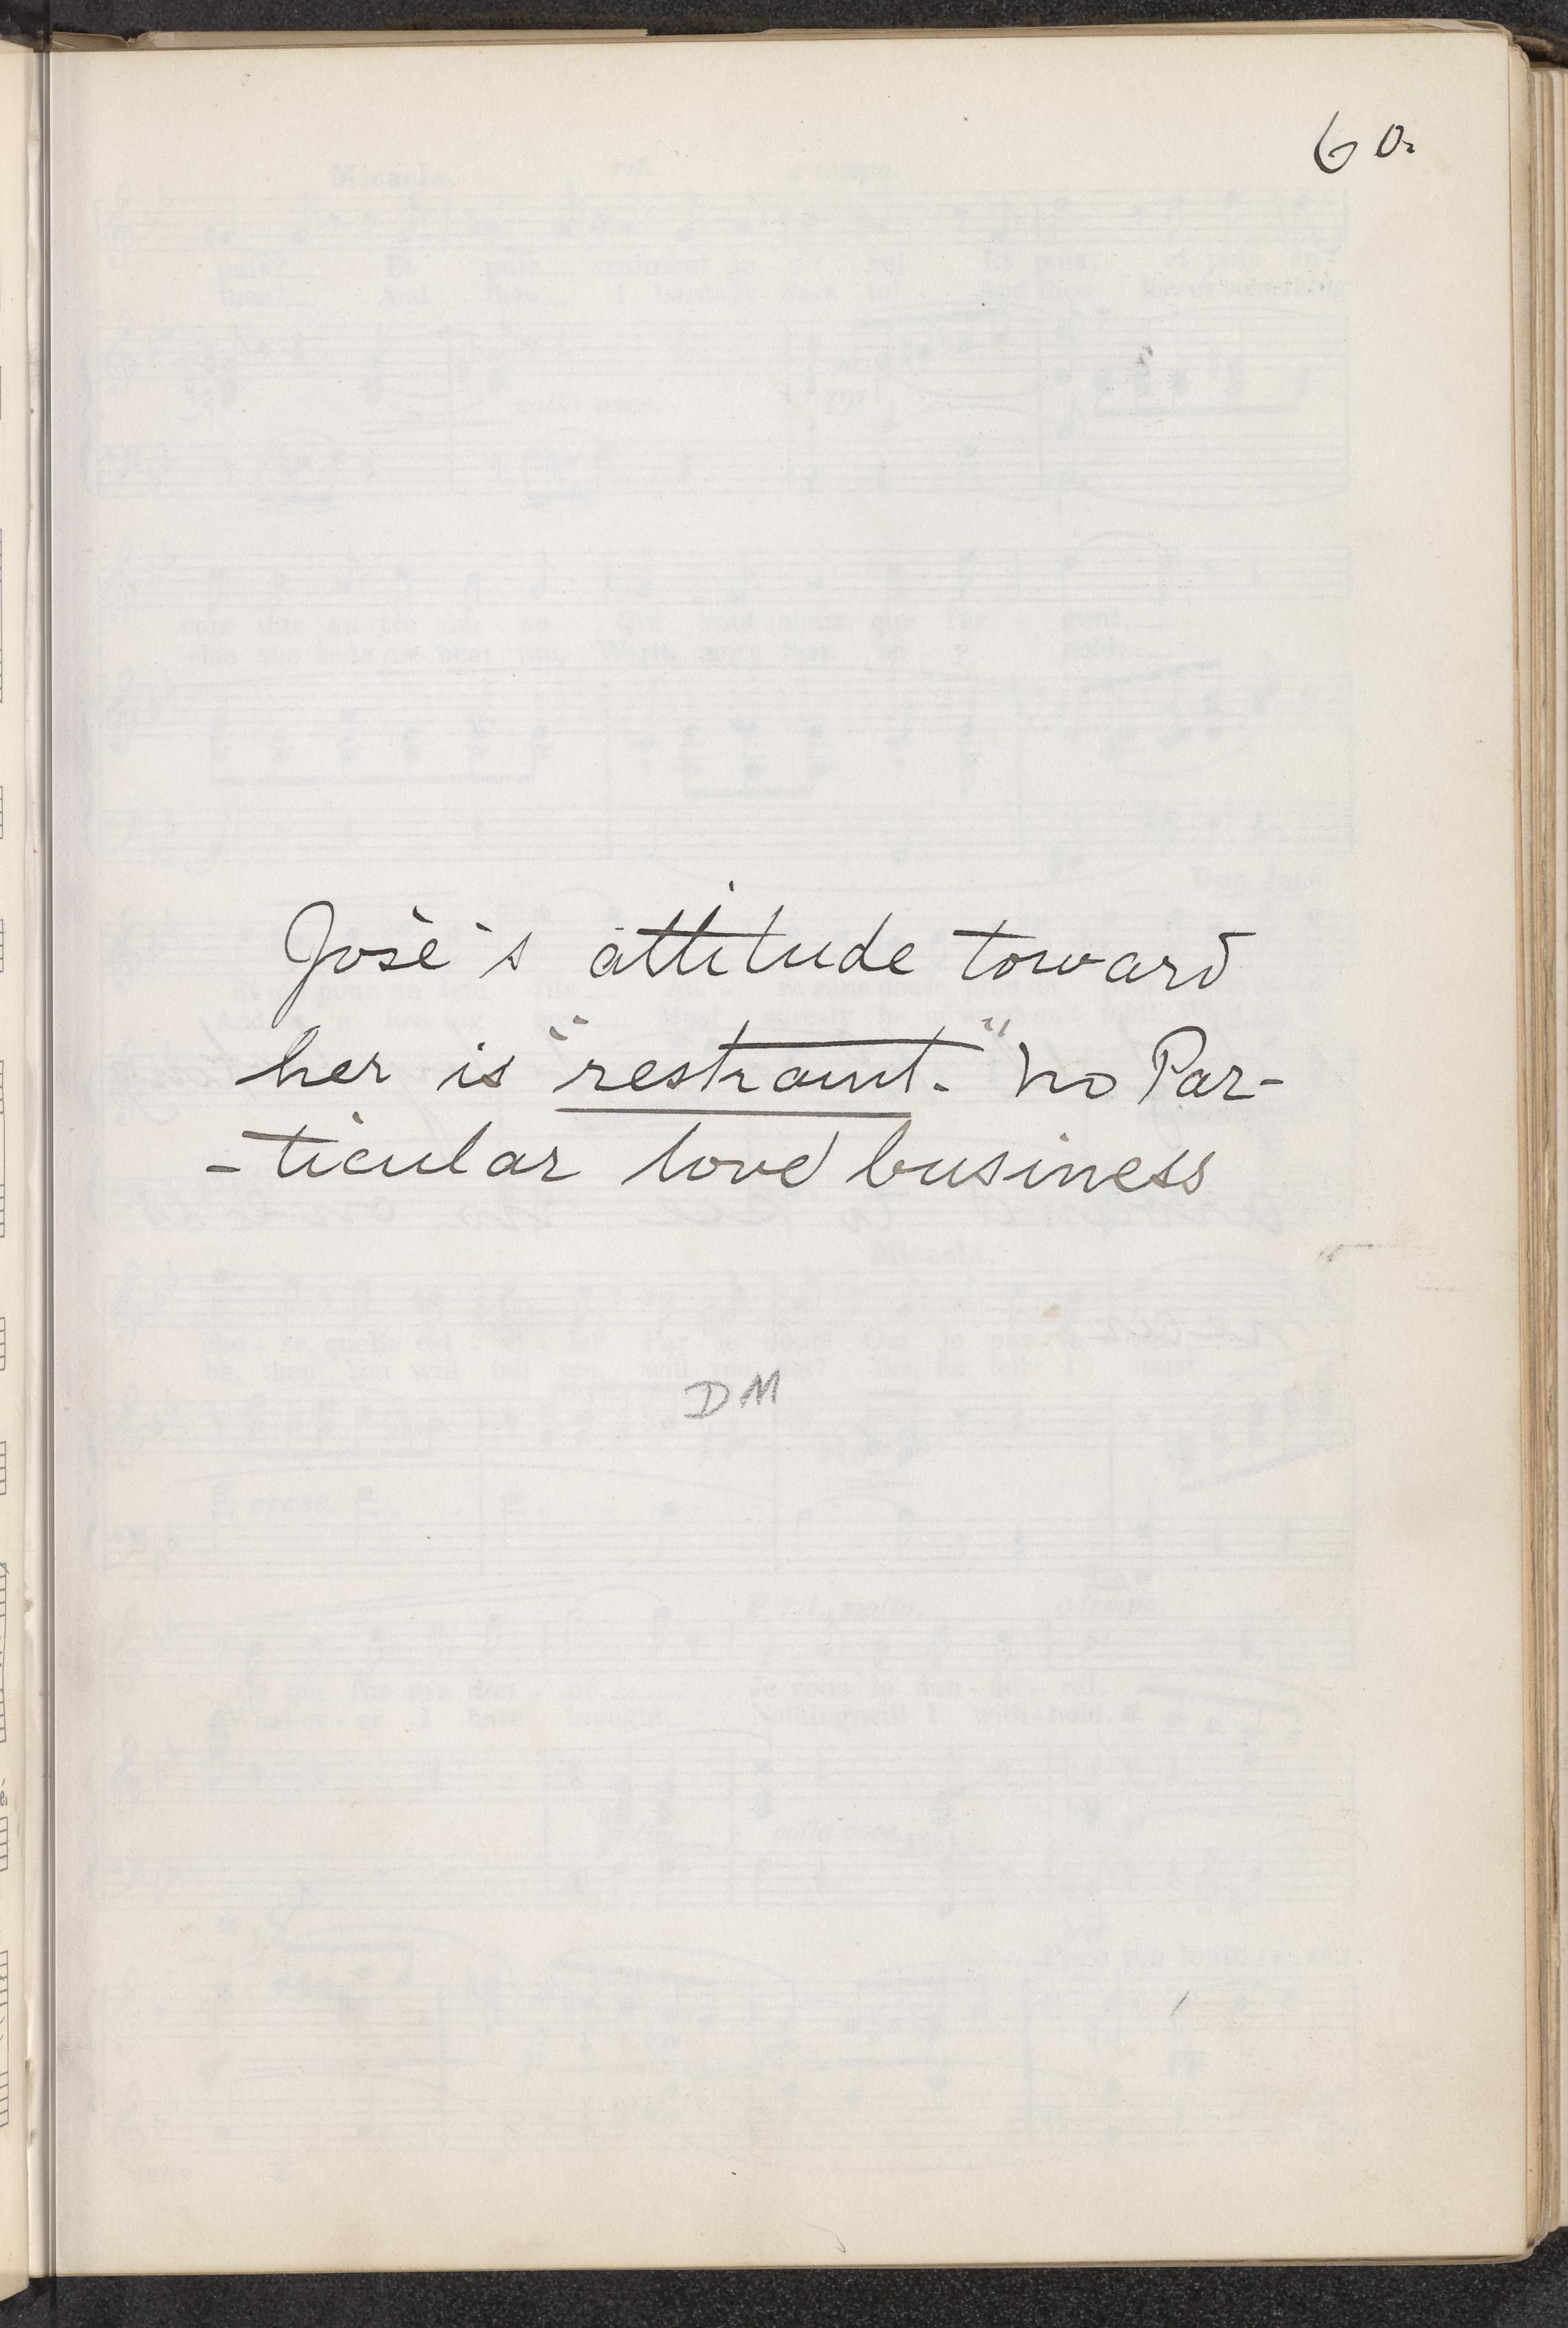 60.
José's attitude toward
her is "restraint." no Par-
-ticular love business
DM